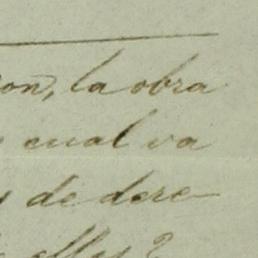 on, la obra
cual va
de dere
ellos?